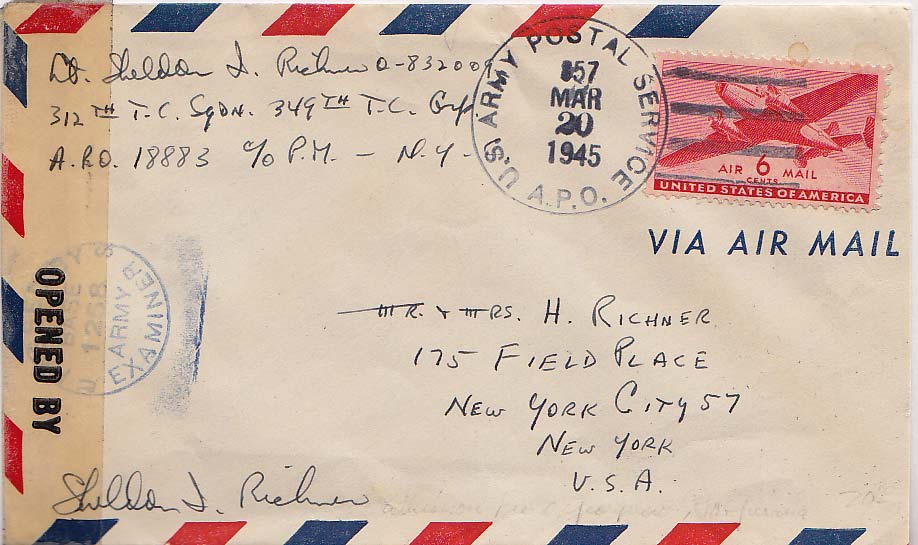 Lt. Sheldon I. Richner O-832009
312TH T.C. Sqdn. 349TH T.C. Grp
A.P.O. 18883 c/o P.M. - N.Y.-
U.S. ARMY POSTAL SERVICE A.P.O.
857
MAR
20
1945
AIR 6 MAIL
CENTS
UNITED STATES OF AMERICA
VIA AIR MAIL
OPENED BY
BASE
1258
ARMY
EXAMINER
MR. & MRS. H. RICHNER
175 FIELD PLACE
NEW YORK CITY 57
NEW YORK
U.S.A.
Sheldon I. Richner